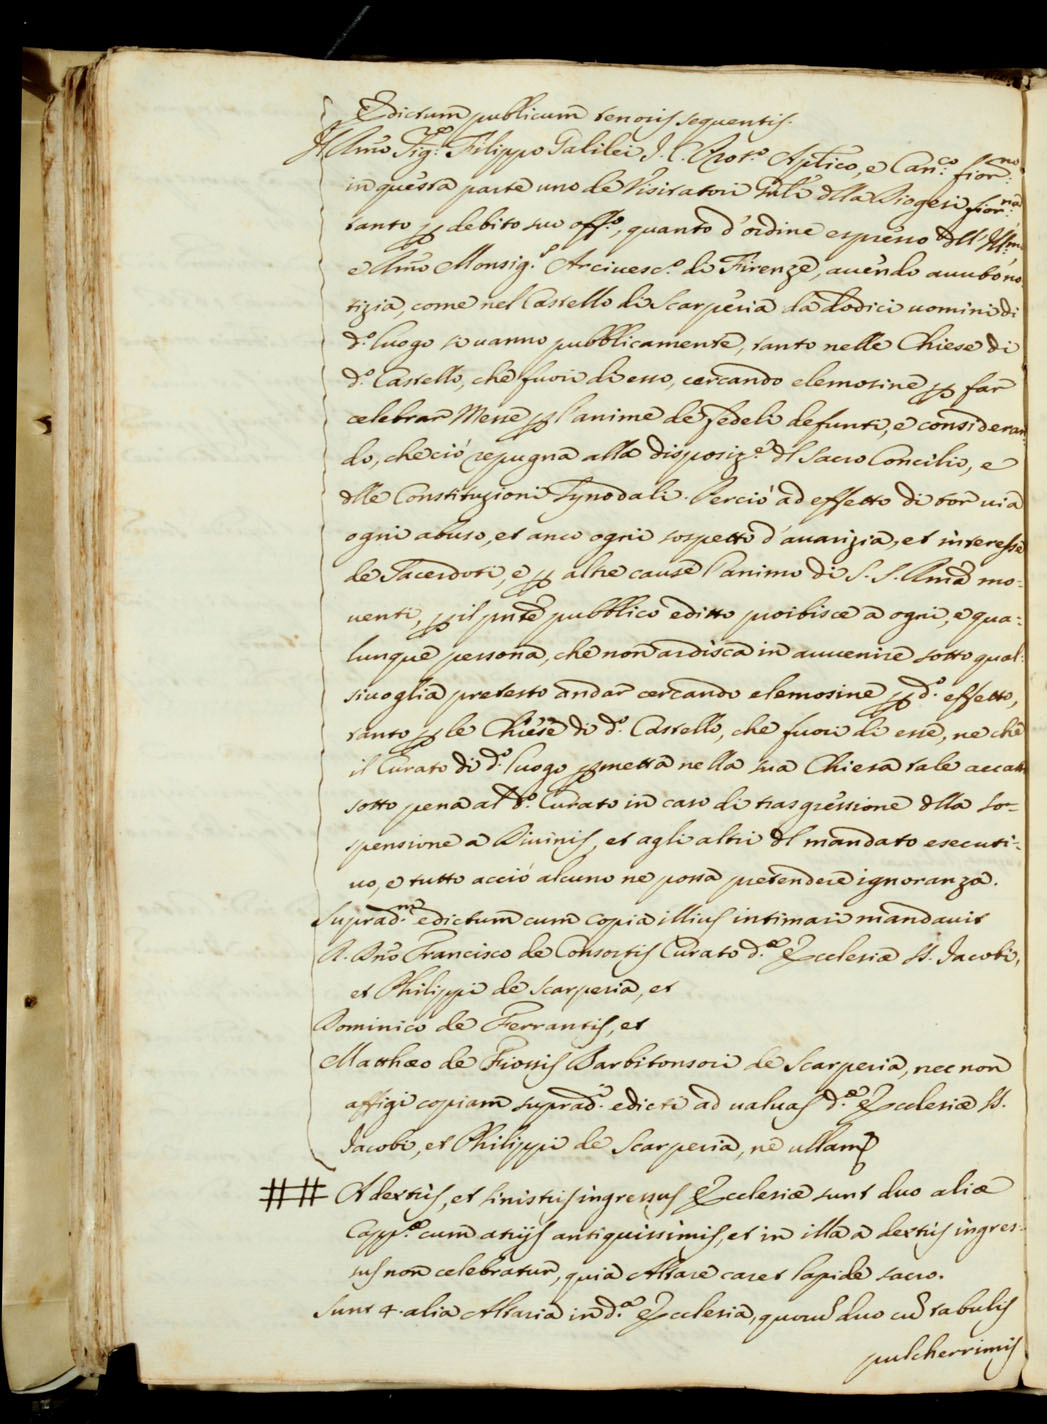 Edictum publicum tenoris sequentis.
Il Sig.re Filippo Galilei J. C. Prot.o Aptico, e Can.co fior.no
in questa parte uno de Visitatori della Diogesi fior.na
tanto p debito suo off.o, quanto d'ordine espresso dell' Ill.mo
e Monsig.r Arciuesc.o di Firenze, auendo auuto no
tizia, come nel Castello di Scarperia da dodici uomini di
d.o luogo si uanno pubblicamente, tanto nelle Chiese di
d.o Castello, che fuori di esso, cercando elemosine p far
celebrar Messe p l'anime de fedeli defunti, e consideran
do, che ciò repugna alla disposiz.e dl sacro Concilio, e
dlle Constituzioni Synodali. Perciò ad effetto di tor uia
ogni abuso, et anco ogni sospetto d'auarizia, et interesse
de Sacerdoti, e p altre cause l'animo di S. S. mo=
uenti, p il pnte pubblico editto proibisce a ogni, e qua=
lunque persona, che non ardisca in auuenire sotto qual=
siuoglia pretesto andar cercando elemosine p d.o effetto,
tanto p le Chiese di d.o Castello, che fuori di esse, ne che
il Curato di d.o luogo pmetta nella sua Chiesa tale accatto
sotto pena al d.o Curato in caso di trasgressione dlla so=
spensione a Diuinis, et agli altri dl mandato esecuti=
uo, e tutto acciò alcuno ne possa pretendere ignoranza.
suprad.m edictum cum copia illius intimari mandauit
R. Dno Francisco de Consortis Curato d.æ Ecclesiæ SS. Jacobi,
et Philippi de Scarperia, et
Dominico de Ferrantis, et
Matthæo de Barbitonsori de Scarperia, nec non
affigi copiam suprad.i edicti ad ualuas d.æ Ecclesiæ SS.
Jacobi, et Philippi de Scarperia, ne ullam
## A dextris, et sinistris ingressus Ecclesiæ sunt duo aliæ
Capp.æ cum antiquissimis, et in illa a dextris ingres-
sus non celebratur, quia Altare caret lapide sacro.
Sunt 4. alia Altaria in d.a Ecclesia, quoru duo cu tabulis
pulcherrimis